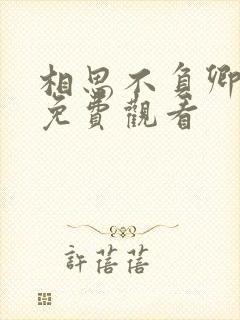 相思不負卿
免費觀看
許蓓蓓